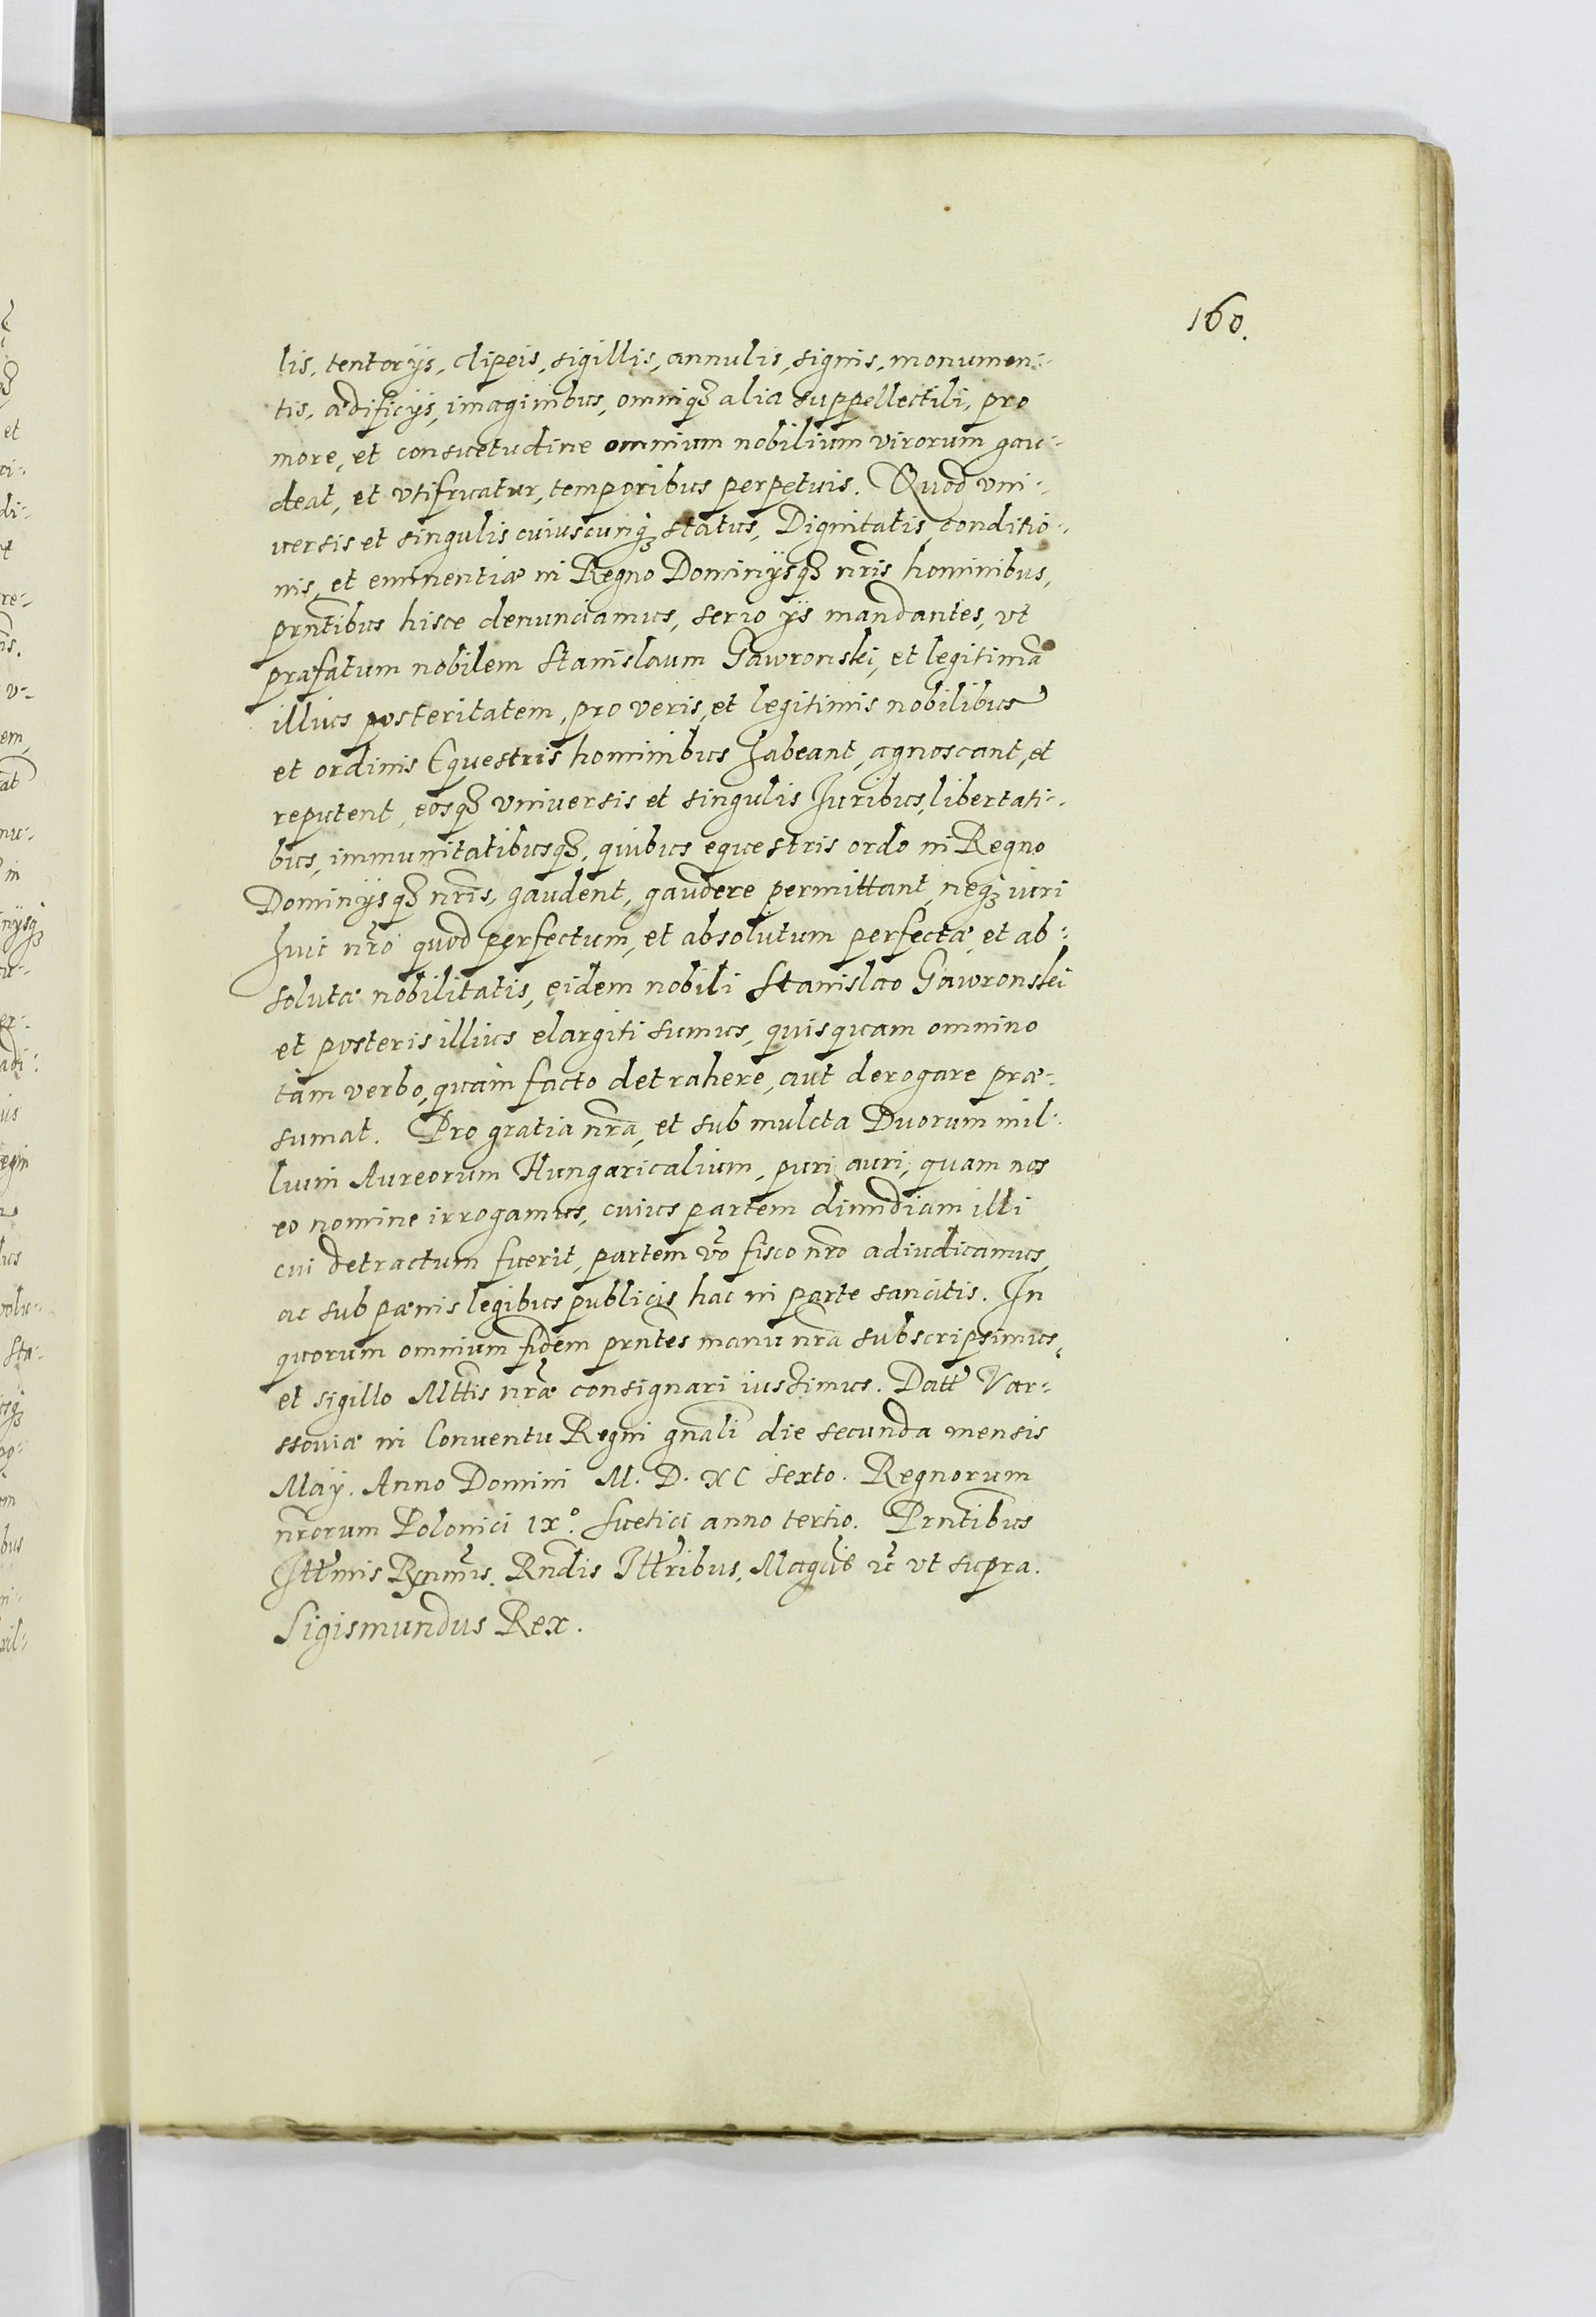 160.
lis, tentorÿs, clipeis, sigillis, annulis, signis, monumen-
tis, ædificÿs, imaginibus, omniqȝ alia suppellectili, pro
more, et consuetudine omnium nobilium virorum gau-
deat, et vtifruatur, temporibus perpetuis. Quod vni-
uersis et singulis cuiuscunqȝ status, Dignitatis, conditio-
nis, et eminentiæ in Regno Dominÿsqȝ nr̃is hominibus,
prñtibus hisce denunciamus, serio ÿs mandantes, vt
præfatum nobilem Stanislaum Gawronski, et legitimã
illius posteritatem, pro veris, et legitimis nobilibus
et ordinis Equestris hominibus habeant, agnoscant, et
reputent, eosqȝ vniuersis et singulis Iuribus, libertati-
bus, immunitatibusqȝ, quibus equestris ordo in Regno
Dominÿsqȝ nr̃is, gaudent, gaudere permittant, neqȝ iuri
huic nr̃o quod perfectum, et absolutum perfectæ et ab-
solutæ nobilitatis, eidem nobili Stanislao Gawronski
et posteris illius elargiti sumus, quisquam omnino
tam verbo, quam facto detrahere, aut derogare præ-
sumat. Pro gratia nr̃a, et sub mulcta Duorum mil-
lium Aureorum Hungaricalium, puri auri, quam nos
eo nomine irrogamus, cuius partem dimidiam illi
cui detractum fuerit, partem ṽo fisco nr̃o adiudicamus,
ac sub pænis legibus publicis hac in parte sancitis. In
quorum omnium fidem prñtes manu nr̃a subscripsimus,
et sigillo Mttis nr̃æ consignari iussimus. Datt Var-
ssouiæ in Conuentu Regni gñali die secunda mensis
Maÿ. Anno Domini M. D. XC sexto. Regnorum
nr̃orum Polonici IX.º Suetici anno tertio. Prñtibus
Illr̃mis Rñmis. Rñdis Illr̃ibus, Magcis ut̃ vt supra.
Sigismundus Rex.